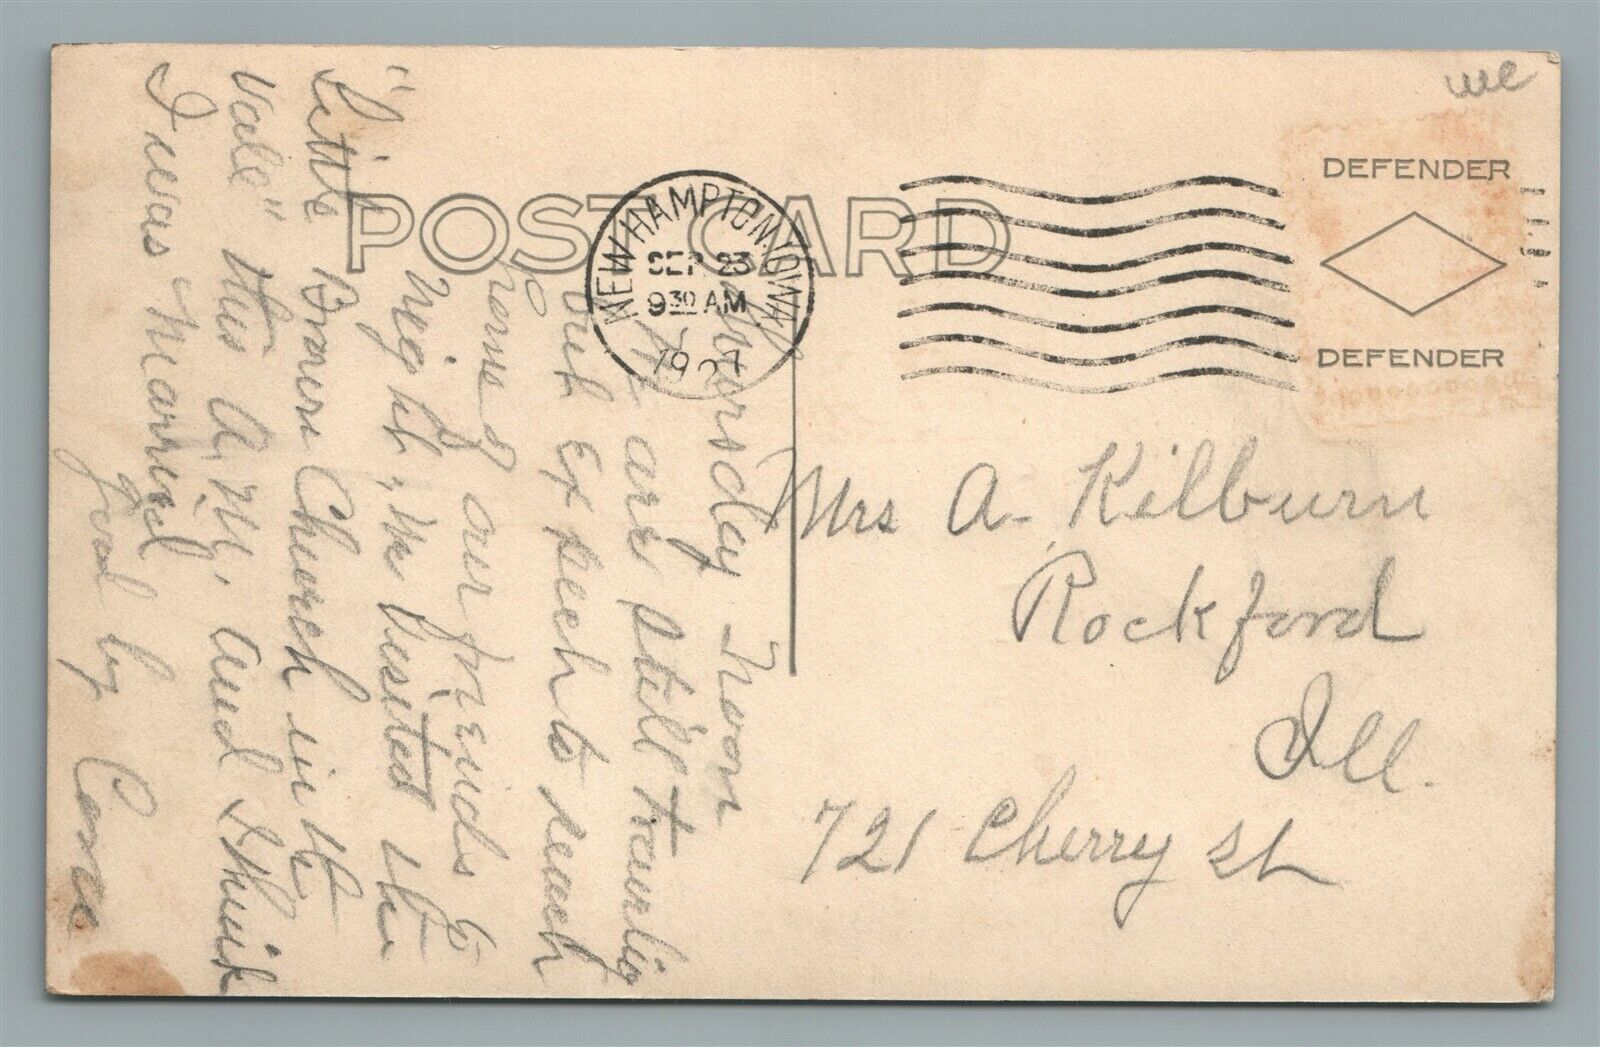 we
DEFENDER
DEFENDER
POST CARD
NEW HAMPTON, IOWA
SEP 23
9 30 AM
Thursday Noon
We are still traveling
but expect to reach
home of our friends to
Night, we visited the
"Little Brown Church in the
Vale" this A.M. and I think
I was Married
Good by Cora
Mrs A. Kilburn
Rockford
Ill.
721 Cherry St